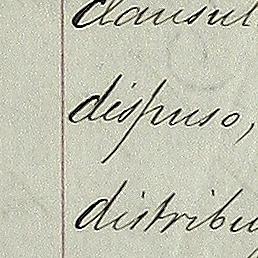 clausul
dispuso,
distribu